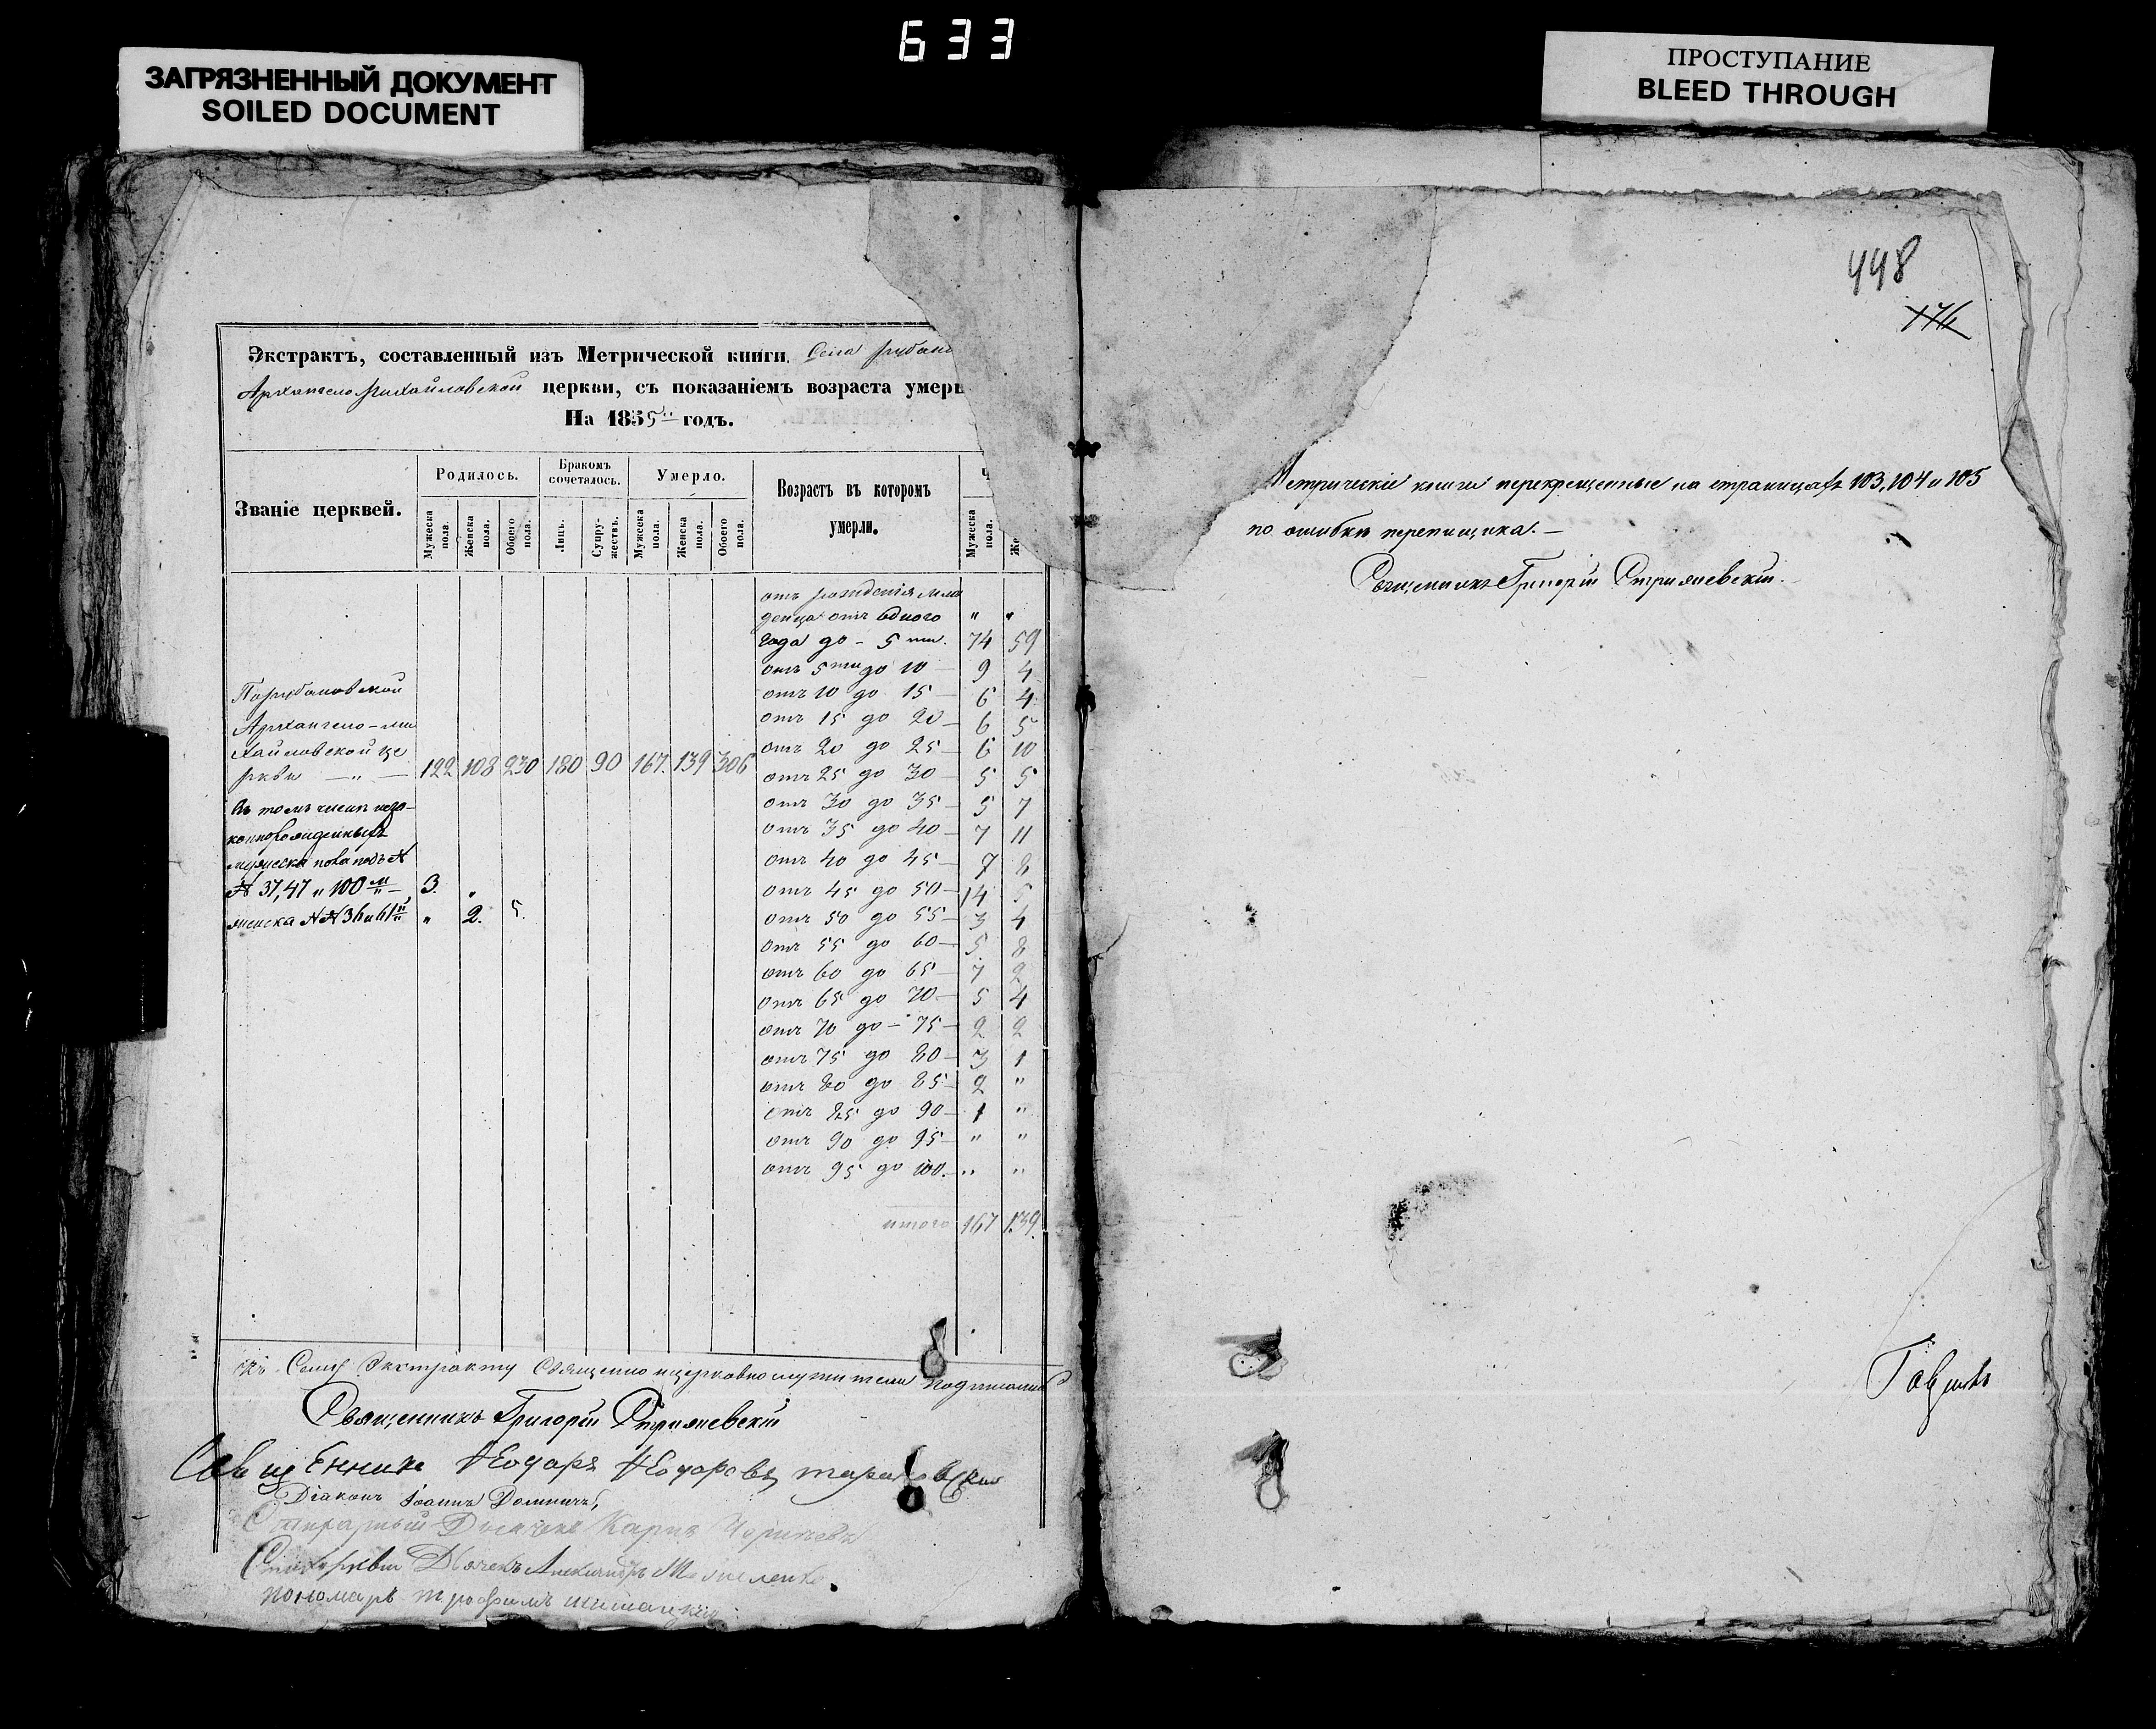 633
ЗАГРЯЗНЕННЫЙ ДОКУМЕНТ
SOILED DOCUMENT
ПРОСТУПАНИЕ
BLEED THROUGH
Экстрактъ, составленный изъ Метрической книги, Села
Архангело Михайловской церкви, съ показаніемъ возраста умерш
На 1855й годъ.
Званіе церквей.
Родилось.
Бракомъ сочеталось.
Умерло.
Возрастъ въ которомъ умерли.
Мужеска пола.
Женска пола.
Обоего пола.
Лицъ.
Супружествъ.
Мужеска пола.
Женска пола.
Обоего пола.
Мужеска пола.
Же
отъ рожденія мла
денца отъ одного " "
года до - 5 ти. 74 59
отъ 5ти до 10 — 9 4
отъ 10 до 15 — 6 4
отъ 15 до 20 — 6 5
отъ 20 до 25 — 6 10
отъ 25 до 30 — 5 5
отъ 30 до 35 — 5 7
отъ 35 до 40 — 7 11
отъ 40 до 45 — 7 8
отъ 45 до 50 — 14 5
отъ 50 до 55 — 3 4
отъ 55 до 60 — 5 8
отъ 60 до 65 — 7 2
отъ 65 до 70 — 5 4
отъ 70 до — 75 — 2 2
отъ 75 до 80 — 3 1
отъ 80 до 85 — 2 "
отъ 85 до 90 — 1 "
отъ 90 до 95 — " "
отъ 95 до 100. — " "
итого 167 139.
Архангело-ми
хайловской це
ркви — " — 122 108 230 180 90 167. 139 306
въ томъ числѣ неза-
коннорожденныхъ
мужеска пола подъ №
№ 37, 47 и 100м — 3. "
женска №№ 36 и 61й " 2. 5.
къ Сему Экстракту Священно и церковно служители подписались
Священникъ Григорій Стрижевскій
Священникъ Ѳеодоръ Ѳеодоровъ
Діаконъ Іоаннъ
Дьячекъ Карпъ
Дьячекъ Александръ
пономарь трофимъ
448
176
Метрическіе книги перекрещенные на страницахъ 103, 104 и 105
по ошибкѣ перепищика. —
Священникъ Григорій Стрижевскій.